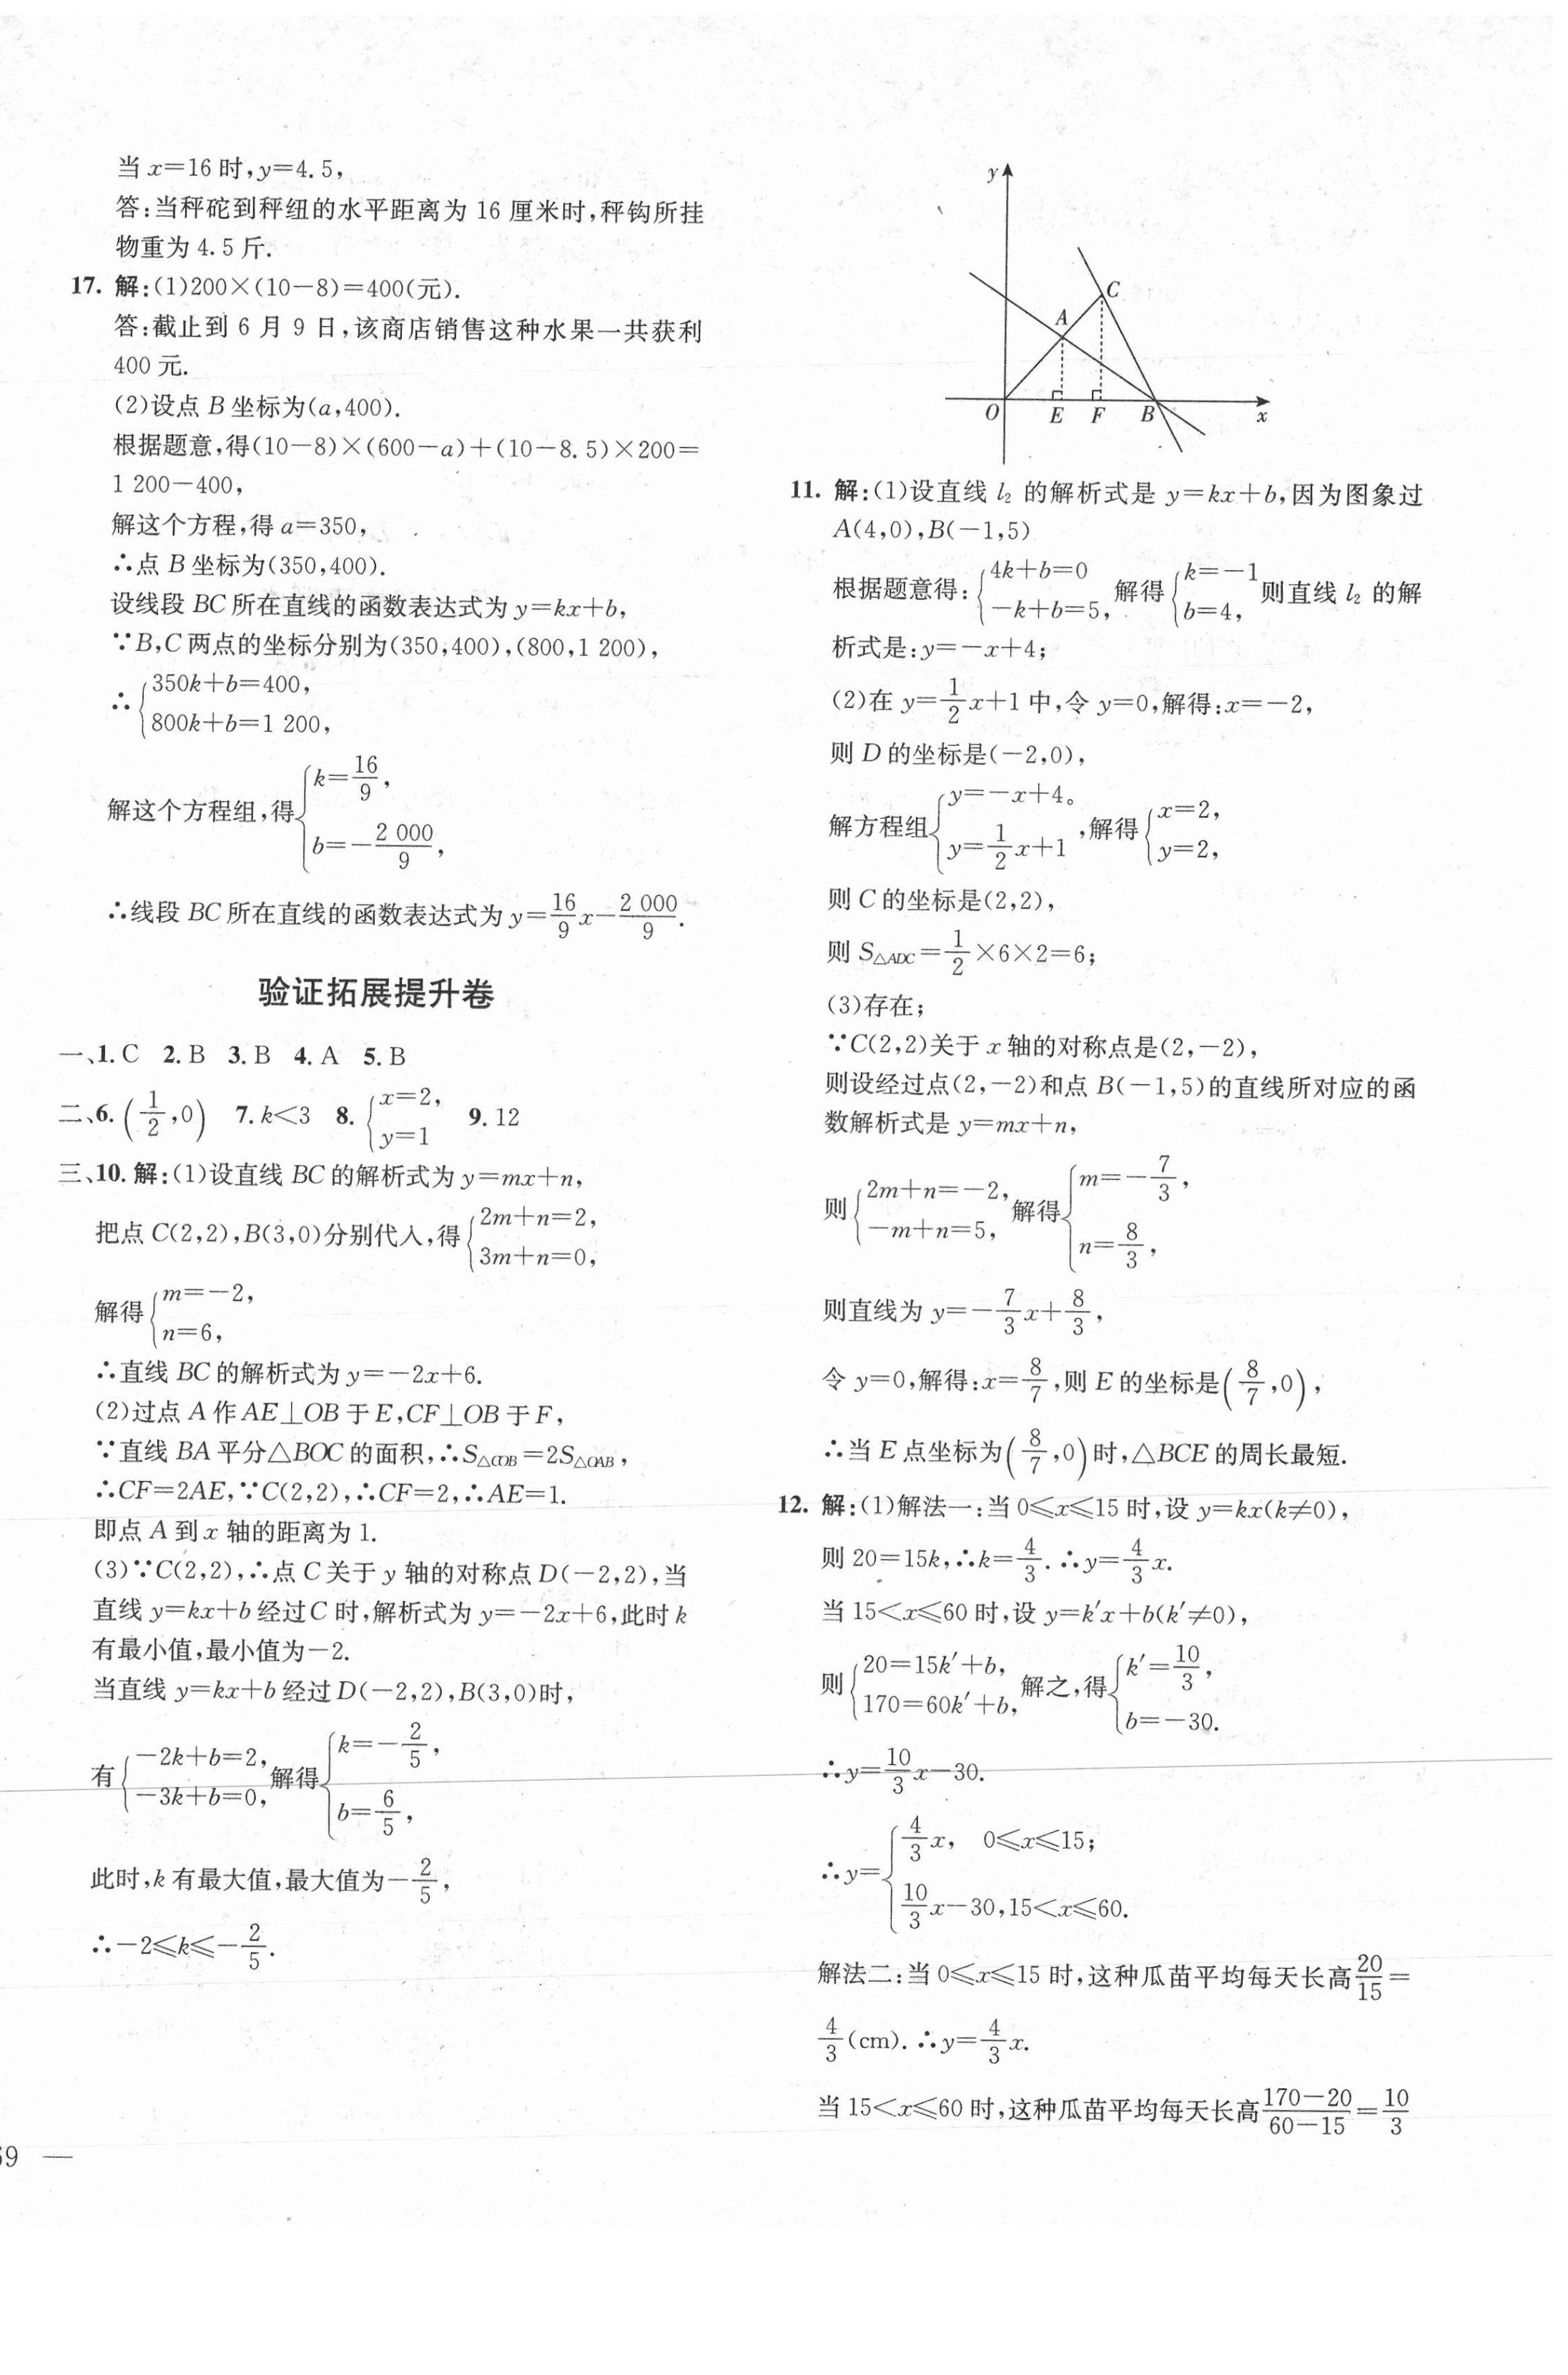 当 x=16 时,y=4.5,
答:当秤砣到秤纽的水平距离为 16 厘米时,秤钩所挂
物重为 4.5 斤.
17. 解:(1)200×(10−8)=400(元).
答:截止到 6 月 9 日,该商店销售这种水果一共获利
400 元.
(2)设点 B 坐标为(a,400).
根据题意,得(10−8)×(600−a)+(10−8.5)×200=
1 200−400,
解这个方程,得 a=350,
∴点 B 坐标为(350,400).
设线段 BC 所在直线的函数表达式为 y=kx+b,
∵B,C 两点的坐标分别为(350,400),(800,1 200),
∴{350k+b=400,
800k+b=1 200,
解这个方程组,得{k=16/9,
b=−2 000/9,
∴线段 BC 所在直线的函数表达式为 y=16/9x−2 000/9.
验证拓展提升卷
一、1. C 2. B 3. B 4. A 5. B
二、6. (1/2,0) 7. k<3 8. {x=2, y=1 9. 12
三、10. 解:(1)设直线 BC 的解析式为 y=mx+n,
把点 C(2,2),B(3,0)分别代入,得{2m+n=2,
3m+n=0,
解得{m=−2,
n=6,
∴直线 BC 的解析式为 y=−2x+6.
(2)过点 A 作 AE⊥OB 于 E,CF⊥OB 于 F,
∵直线 BA 平分△BOC 的面积,∴S△COB=2S△OAB,
∴CF=2AE,∵C(2,2),∴CF=2,∴AE=1.
即点 A 到 x 轴的距离为 1.
(3)∵C(2,2),∴点 C 关于 y 轴的对称点 D(−2,2),当
直线 y=kx+b 经过 C 时,解析式为 y=−2x+6,此时 k
有最小值,最小值为−2.
当直线 y=kx+b 经过 D(−2,2),B(3,0)时,
有{−2k+b=2,
−3k+b=0,解得{k=−2/5,
b=6/5,
此时,k 有最大值,最大值为−2/5,
∴−2≤k≤−2/5.
69 —
y
C
A
O E F B x
11. 解:(1)设直线 l₂ 的解析式是 y=kx+b,因为图象过
A(4,0),B(−1,5)
根据题意得:{4k+b=0
−k+b=5,解得{k=−1
b=4,则直线 l₂ 的解
析式是:y=−x+4;
(2)在 y=1/2x+1 中,令 y=0,解得:x=−2,
则 D 的坐标是(−2,0),
解方程组{y=−x+4。
y=1/2x+1,解得{x=2,
y=2,
则 C 的坐标是(2,2),
则 S△ADC=1/2×6×2=6;
(3)存在;
∵C(2,2)关于 x 轴的对称点是(2,−2),
则设经过点(2,−2)和点 B(−1,5)的直线所对应的函
数解析式是 y=mx+n,
则{2m+n=−2,
−m+n=5,解得{m=−7/3,
n=8/3,
则直线为 y=−7/3x+8/3,
令 y=0,解得:x=8/7,则 E 的坐标是(8/7,0),
∴当 E 点坐标为(8/7,0)时,△BCE 的周长最短.
12. 解:(1)解法一:当 0≤x≤15 时,设 y=kx(k≠0),
则 20=15k,∴k=4/3.∴y=4/3x.
当 15<x≤60 时,设 y=k′x+b(k′≠0),
则{20=15k′+b,
170=60k′+b,解之,得{k′=10/3,
b=−30.
∴y=10/3x−30.
∴y={4/3x, 0≤x≤15;
10/3x−30,15<x≤60.
解法二:当 0≤x≤15 时,这种瓜苗平均每天长高20/15=
4/3(cm).∴y=4/3x.
当 15<x≤60 时,这种瓜苗平均每天长高(170−20)/(60−15)=10/3